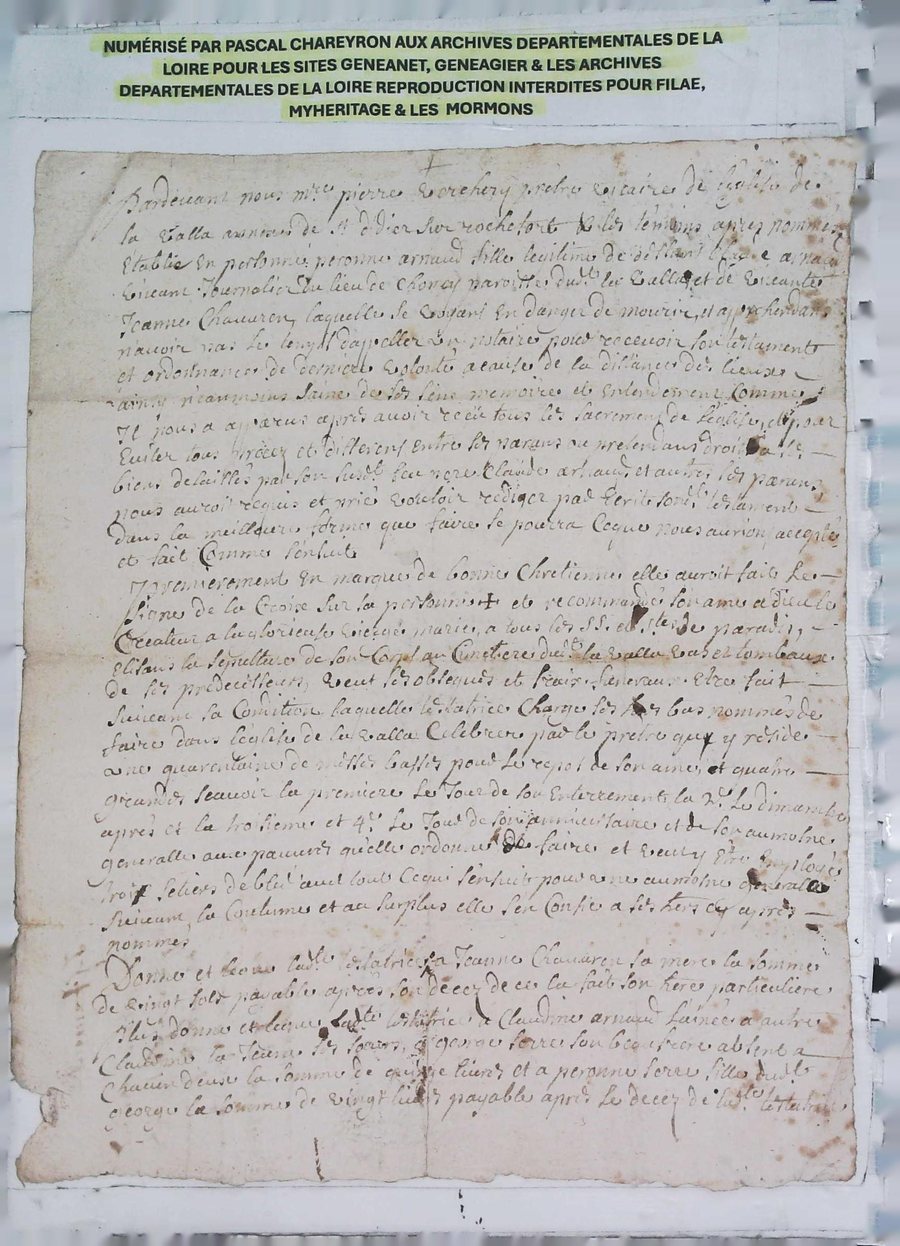 NUMÉRISÉ PAR PASCAL CHAREYRON AUX ARCHIVES DEPARTEMENTALES DE LA
LOIRE POUR LES SITES GENEANET, GENEAGIER & LES ARCHIVES
DEPARTEMENTALES DE LA LOIRE REPRODUCTION INTERDITES POUR FILAE,
MYHERITAGE & LES MORMONS
Pardevant nous mre pierre prêtre vicaire de l'église de
la valla annexe de st didier sur rochefort & les témoins apres nommés
établie en personne peronne arnaud fille legitime de arnaud
vivant Journalier du lieu de paroisse dud. la valla et de vivante
Jeanne Chavaren, laquelle se voyant en danger de mourir, et apprehendant
n'avoir pas le temps d'appeller un notaire pour recevoir son testament
et ordonnance de derniere volonté a cause de la distance des lieux
neanmoins saine de ses sens memoire et entendement comme
Il nous a aparus apres avoir receu tous les sacremens de l'église, et pour
Eviter tous procez et differens entre ses parans ou pretendans droits a ses
biens delaissés par son feu pere Claude arnaud et autres ses parens
nous auroit requis et prié vouloir rediger par écrit son testament
dans la meilleure forme que faire se pourra ce que nous aurions accepté
et fait comme s'ensuit
premierement en marque de bonne Chretienne elle auroit fait le
signe de la Croix sur sa personne + et recommandé son ame a dieu le
Createur a la glorieuse vierge marie, a tous les SS. et stes de paradis,
Elisant la sepulture de son Corps au Cimetiere dud. la valla vas et tombeaux
de ses predecesseurs, veut ses obseques et fraix funeraux Etre fait
suivant sa Condition laquelle testatrice Charge ses bas nommés de
faire dans l'eglise de la valla Celebrer par le pretre qui y reside
une quarentaine de messes basses pour le repos de son ame et quatre
grandes scavoir la premiere le Jour de son Enterrement la 2e le dimanche
apres et la troisieme et 4e le Jour de son anniversaire et de son aumosne
generalle aux pauvres qu'elle ordonne de faire et veut y Etre Employé
trois setiers de bled avec tout Ce qui s'ensuit pour une aumosne generalle
suivant la Coutume et au surplus elle s'en Confie a ses hers cy apres
nommés
Donne et legue lad. testatrice a Jeanne Chavaren sa mere la somme
de vingt sols payable apres son decez de ce la fait son here particuliere
Plus donne et legue testatrice a Claudine arnaud l'ainée a autre
Claudine la Jeune ses soeurs, george serre son beaufrere absent a
Chacun d'eux la somme de quinze livres et a peronne serre fille dud.
george la somme de vingt livres payable apres le decez de testatrice